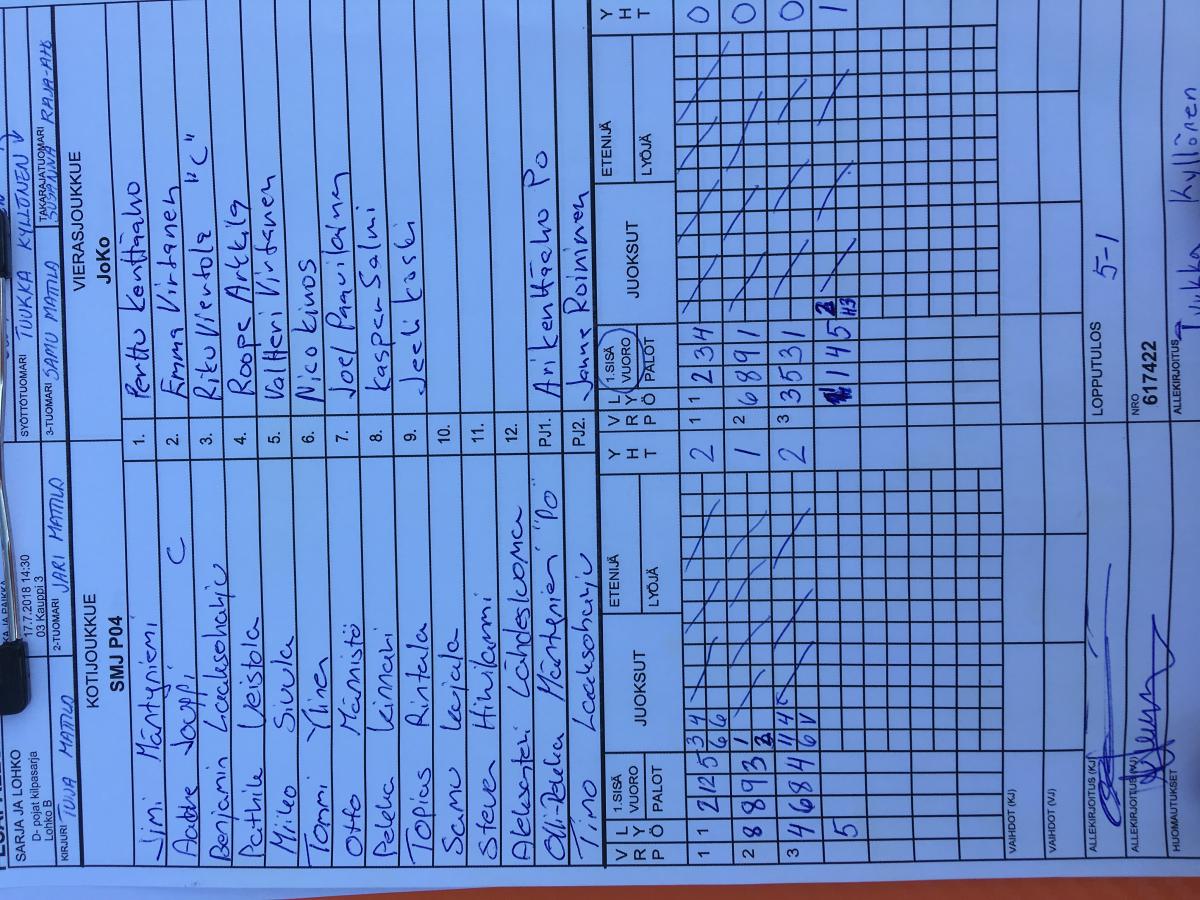 SARJA JA LOHKO
D- pojat kilpasarja
Lohko B
17.7.2018 14:30
03 Kauppi 3
SYÖTTÖTUOMARI TUUKKA KYLLÖNEN
KIRJURI TUUVA MATTILA
2-TUOMARI JARI MATTILA
3-TUOMARI SAMU MATTILA
TAKARAJATUOMARI SUSANNA RAJA-AHO
KOTIJOUKKUE
SMJ P04
VIERASJOUKKUE
JoKo
Jimi Mäntyniemi 1. Perttu Kenttäaho
Aatre Jouppi C 2. Emma Virtanen
Benjamin Laaksoharju 3. Riku Viertola "C"
Veistola 4. Roope Arkkila
Miiko Sivula 5. Valtteri Virtanen
Tommi Ylinen 6. Nico Kinos
Otto Männistö 7. Joel Paavilainen
Pekka Kinnari 8. Kasperi Salmi
Topias Rintala 9. Leevi Koski
Samu Kajala 10.
11.
Aleksanteri Lähdeskorpi 12.
Olli-Pekka Mäntyniemi "PO" PJ1. Ari Kenttäaho Po
Timo Laaksoharju PJ2. Janne Roininen
V R P L Y Ö 1.SISÄ VUORO PALOT JUOKSUT ETENIJÄ LYÖJÄ Y H T V R P L Y Ö 1.SISÄ VUORO PALOT JUOKSUT ETENIJÄ LYÖJÄ Y H T
1 1 2 12 5 3 4 6 6 2 1 1 2 3 4 0
2 8 8 9 3 1 2 1 2 6 8 9 1 0
3 4 6 8 4 4 4 6 V 2 3 3 5 3 1 0
5 1 4 5 2 H3 1
VAIHDOT (KJ)
VAIHDOT (VJ)
ALLEKIRJOITUS (KJ)
LOPPUTULOS 5-1
ALLEKIRJOITUS (VJ)
NRO
617422
HUOMAUTUKSET
ALLEKIRJOITUS Tuukka Kyllönen